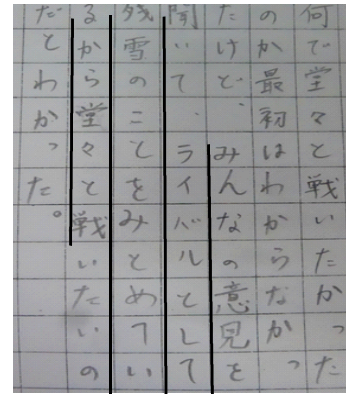 何で堂々と戦いたかった
のか最初はわからなかっ
たけど、みんなの意見を
聞いて、ライバルとして
残雪のことをみとめてい
るから堂々と戦いたいの
だとわかった。